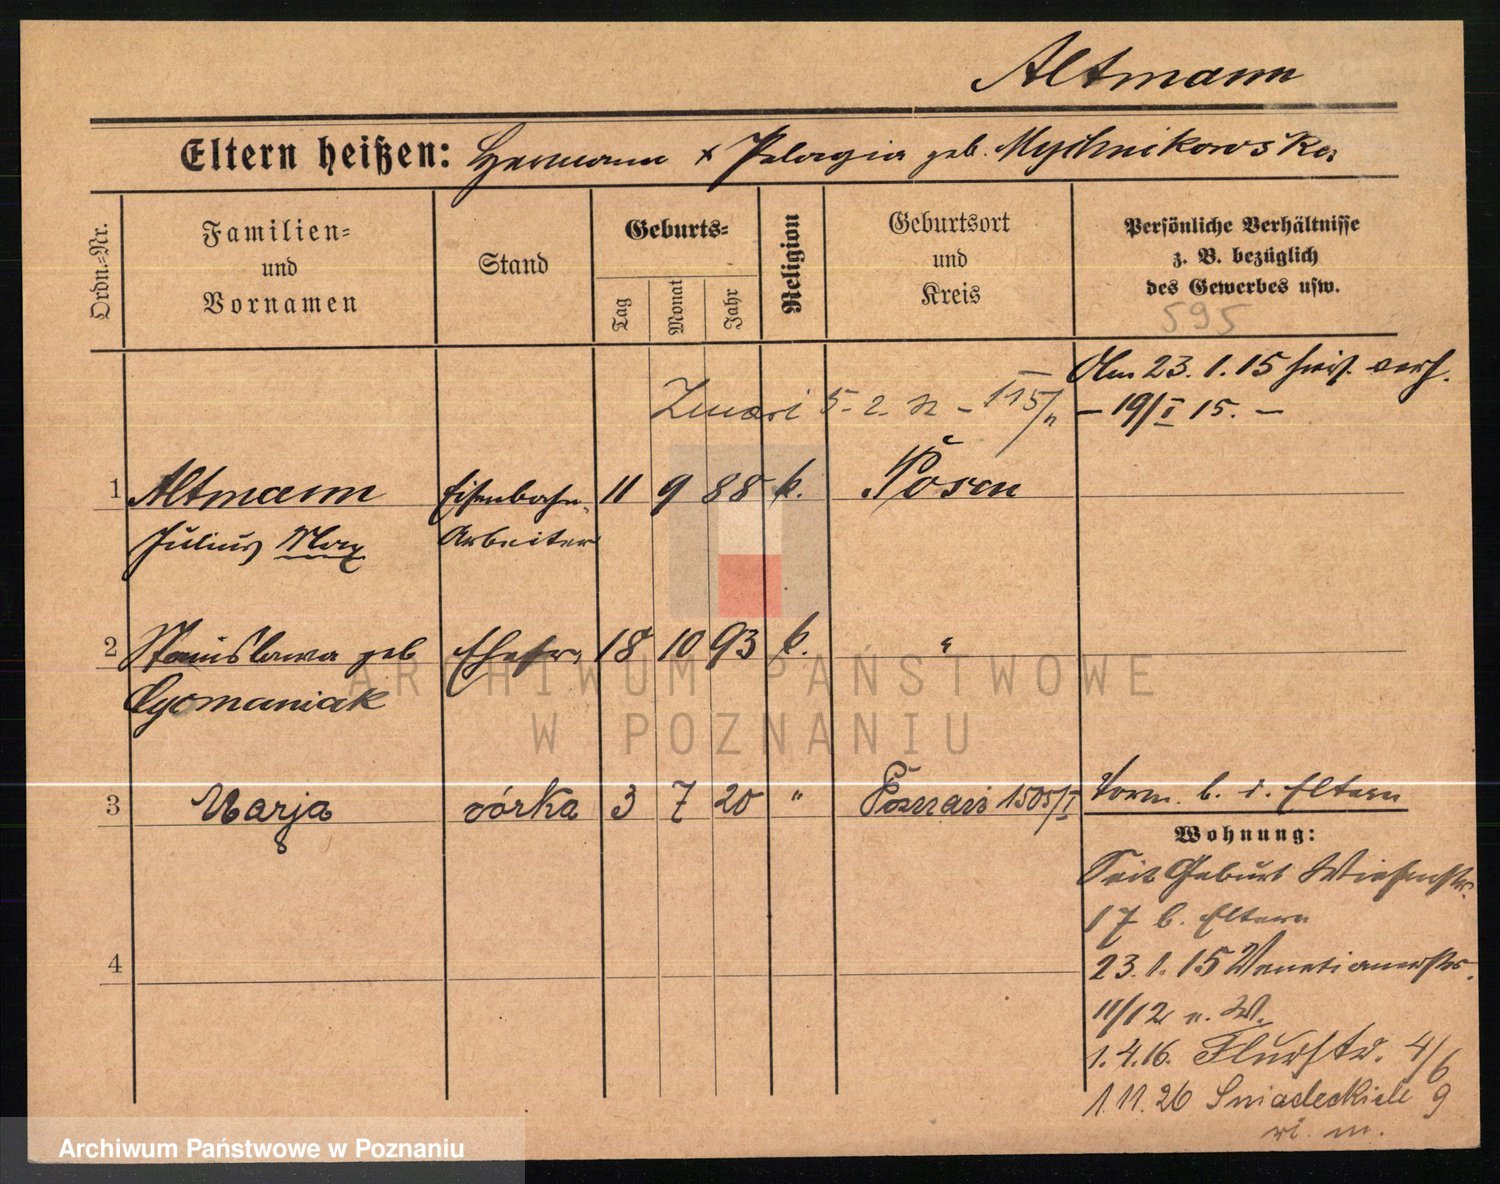 Altmann
Eltern heißen: Hermann x Pelagia geb. Mychnikowska
Ordn.-Nr.
Familien-
und
Vornamen
Stand
Geburts-
Tag
Monat
Jahr
Religion
Geburtsort
und
Kreis
Persönliche Verhältnisse
z. B. bezüglich
des Gewerbes usw.
595
Am 23. 1. 15 hier verh.
5. 2. - 115/
- 19/I 15. -
1 Altmann Eisenbahn- 11 9 88 k. Posen
Julius Max Arbeiter
2 Stanislawa geb Ehefr. 18 10 93 k. "
Cyomaniak
ARCHIWUM PAŃSTWOWE
W POZNANIU
3 Marja córka 3 7 20 " Poznań 1505/I
Vorm. b. d. Eltern
Wohnung:
Seit Geburt Wiesenstr.
17 b. Eltern
4
23. 1. 15 Venetianerstr.
11/12 n. W.
1. 4. 16. Flurstr. 4/6
1. 11. 26 Sniadeckich 9
m.
Archiwum Państwowe w Poznaniu